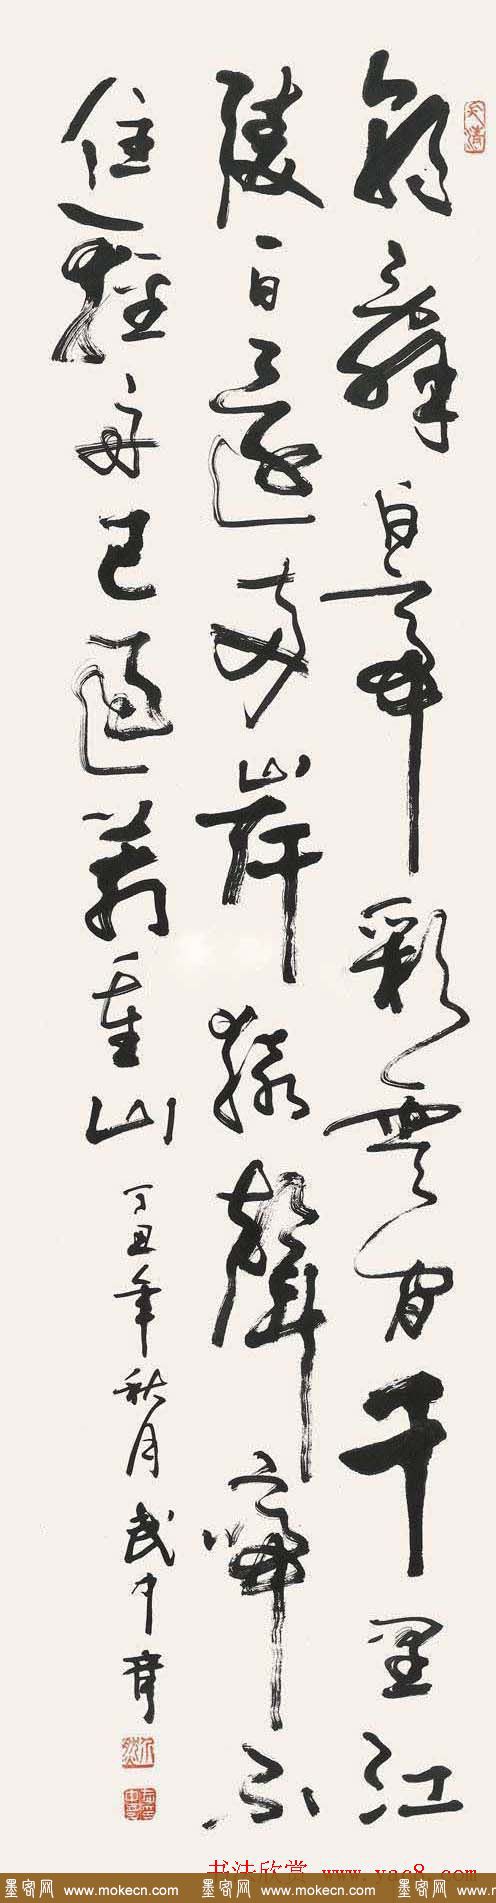 朝辭白帝彩雲間千里江
陵一日還兩岸猿聲啼不
住輕舟已過萬重山 丁丑年秋月 武中奇
书法欣赏 www.yac8.com
墨客网 www.mokecn.com 墨客网 www.mokecn.com 墨客网